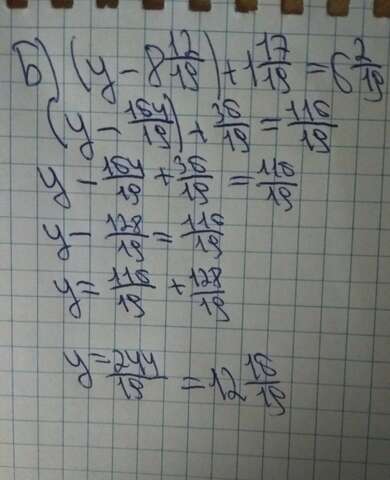 Б) (y - 8 12/19) + 1 17/19 = 6 2/19
(y - 164/19) + 36/19 = 116/19
y - 164/19 + 36/19 = 116/19
y - 128/19 = 116/19
y = 116/19 + 128/19
y = 244/19 = 12 16/19